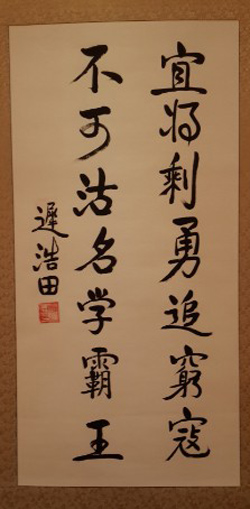 宜将剩勇追窮寇
不可沽名学霸王
遲浩田